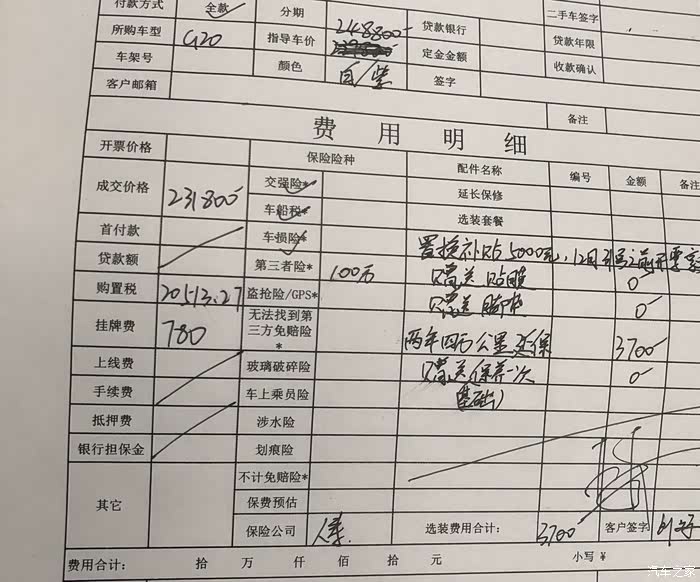 付款方式 全款 分期 248800- 贷款银行 二手车签字
所购车型 G20 指导车价 定金金额 贷款年限
车架号 颜色 白/紫 签字 收款确认
客户邮箱
备注
费用明细
开票价格 保险险种 配件名称 编号 金额 备注
成交价格 231800- 交强险* 延长保修
车船税* 选装套餐
首付款 车损险* 置换补贴5000元,12月31号之前开票
贷款额 第三者险* 100万 赠送贴膜 0
购置税 20513.27 盗抢险/GPS* 赠送脚垫 0
挂牌费 780 无法找到第三方免赔险* 两年四万公里延保 3700
上线费 玻璃破碎险 赠送保养一次 0
手续费 车上乘员险 基础)
抵押费 涉水险
银行担保金 划痕险
不计免赔险*
其它 保费预估
保险公司 人保 选装费用合计: 3700 客户签字
费用合计: 拾 万 仟 佰 拾 元 小写¥
汽车之家